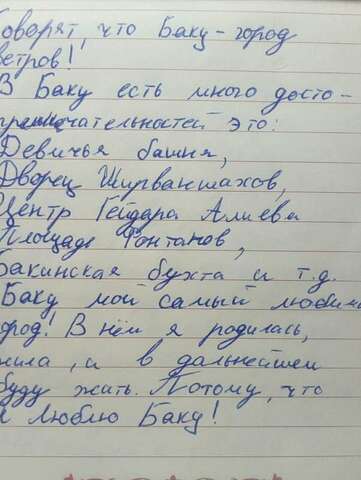 Говорят, что Баку - город
ветров!
В Баку есть много досто-
примечательностей это:
Девичья башня,
Дворец Ширваншахов,
Центр Гейдара Алиева
Площадь Фонтанов,
Бакинская бухта и т.д.
Баку мой самый любимы
город! В нём я родилась,
жила, и в дальнейшем
буду жить. Потому, что
я люблю Баку!